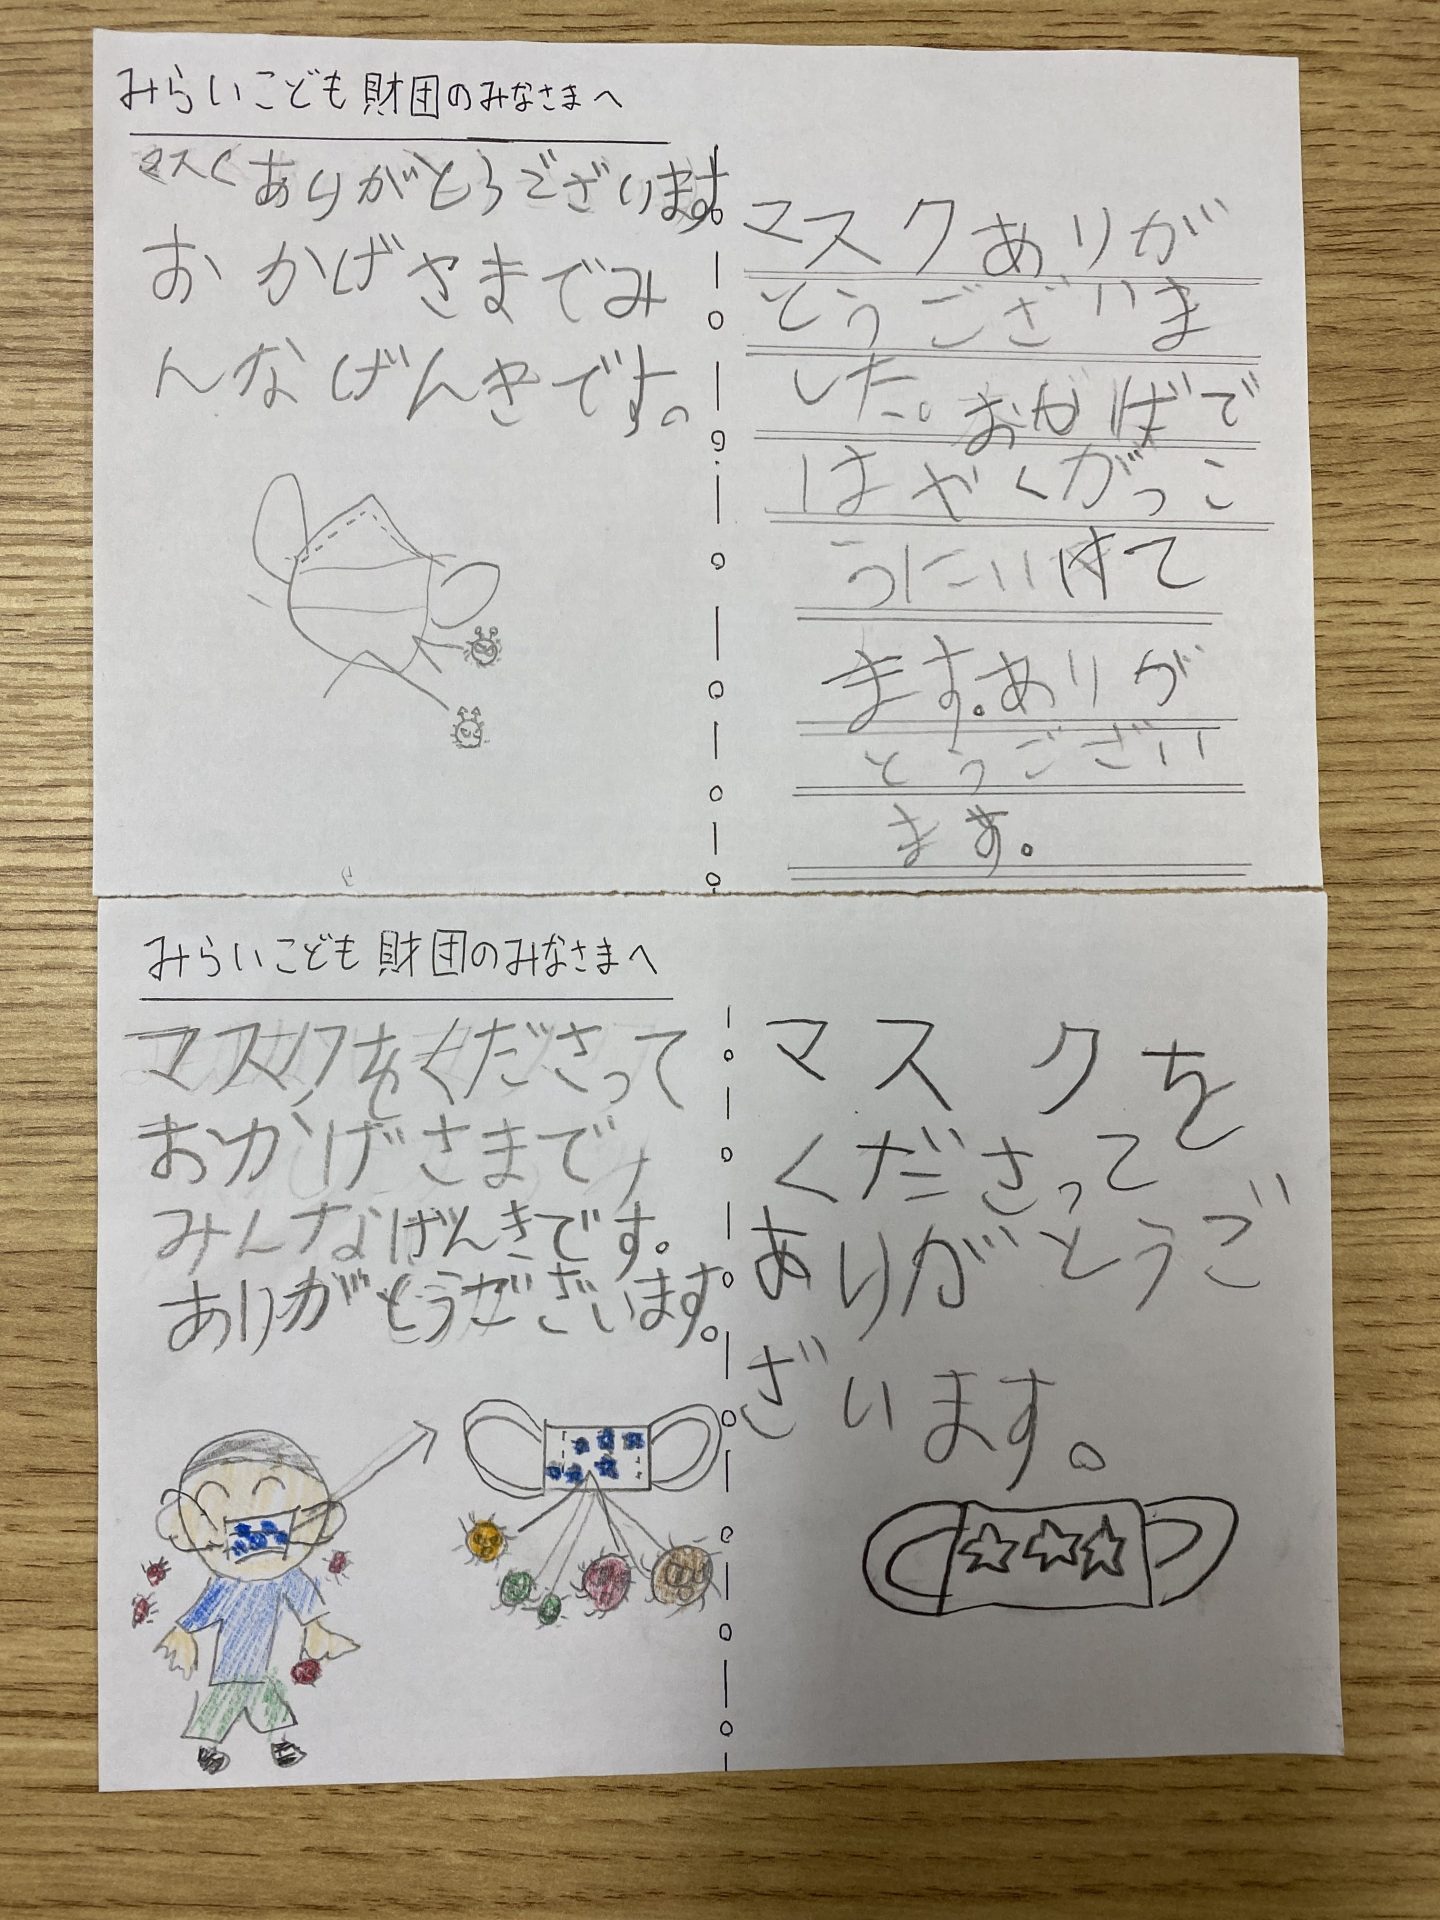 みらいこども財団のみなさまへ
マスくありがとうございます。
おかげさまでみ
んなげんきです。
マスクありが
とうございま
した。おかげで
はやくがっこ
うにいけて
ます。ありが
とうござい
ます。
みらいこども財団のみなさまへ
マスクをくださって
おかげさまで、
みんなげんきです。
ありがとうございます。
マスクを
くださって
ありがとうご
ざいます。